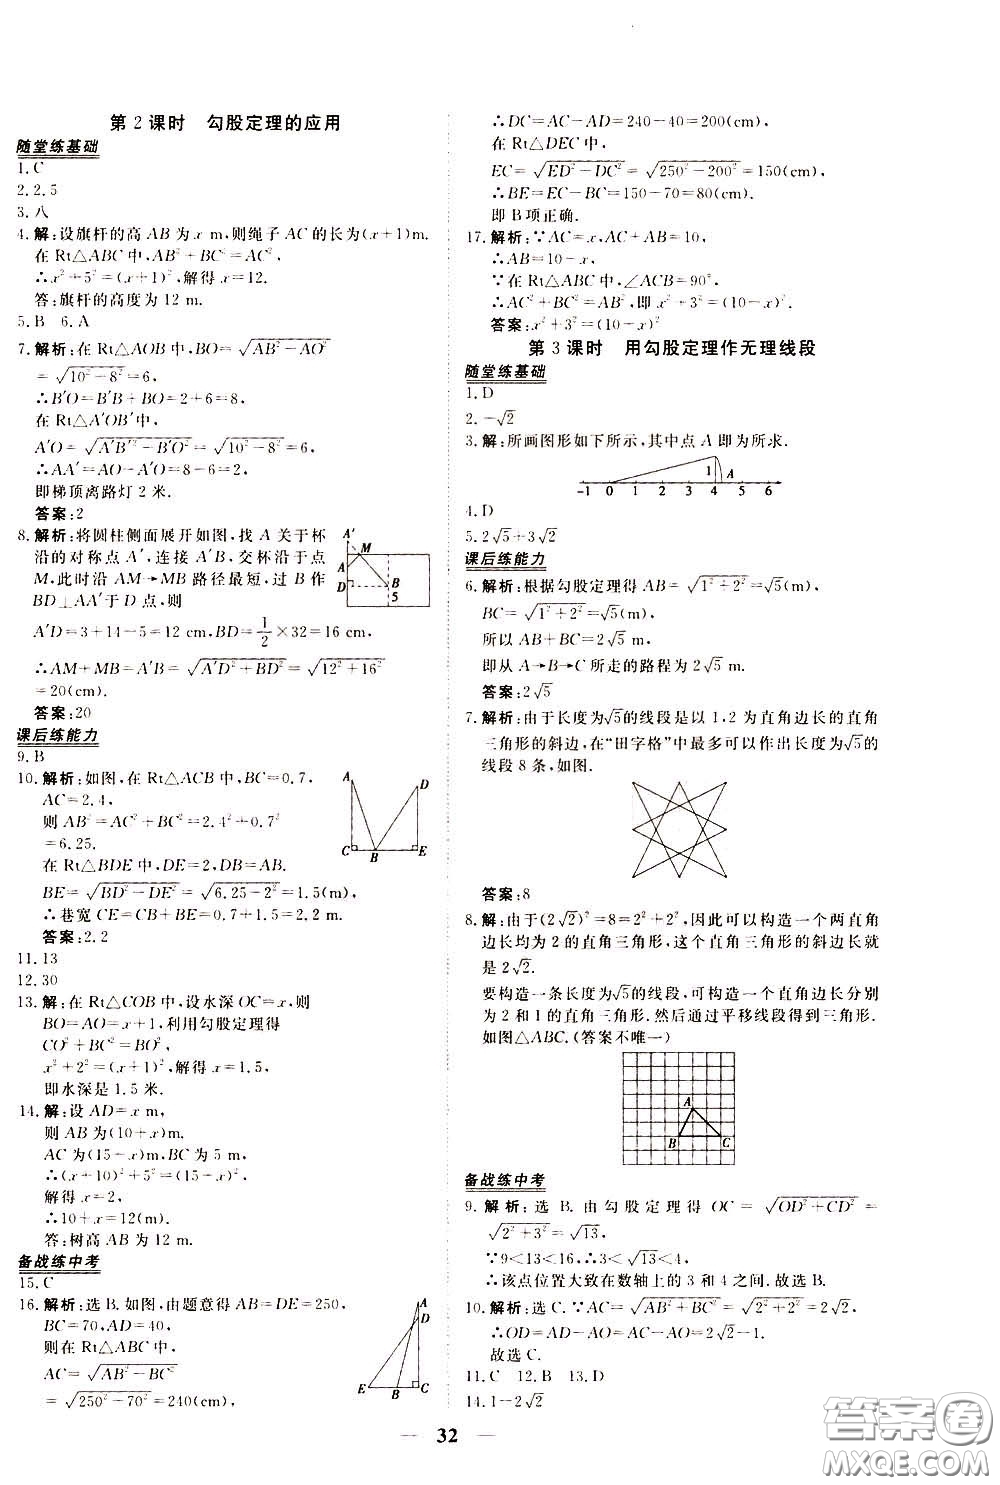 第 2 课时　勾股定理的应用
随堂练基础
1.C
2.2.5
3.八
4.解:设旗杆的高 AB 为 x m,则绳子 AC 的长为(x+1)m.
在 Rt△ABC 中,AB²+BC²=AC²
∴x²+5²=(x+1)²,解得 x=12.
答:旗杆的高度为 12 m.
5.B　6.A
7.解析:在 Rt△AOB 中,BO=√(AB²-AO²)
=√(10²-8²)=6,
∴B′O=B′B+BO=2+6=8,
在 Rt△A′OB′中,
A′O=√(A′B′²-B′O²)=√(10²-8²)=6,
∴AA′=AO-A′O=8-6=2,
即梯顶离路灯 2 米.
答案:2
8.解析:将圆柱侧面展开如图,找 A 关于杯
沿的对称点 A′,连接 A′B,交杯沿于点
M,此时沿 AM→MB 路径最短,过 B 作
BD⊥AA′于 D 点,则
A′D=3+14-5=12 cm,BD=1/2×32=16 cm,
∴AM+MB=A′B=√(A′D²+BD²)=√(12²+16²)
=20(cm).
答案:20
A′
M
A
D
B
5
课后练能力
9.B
10.解析:如图,在 Rt△ACB 中,BC=0.7,
AC=2.4,
则 AB²=AC²+BC²=2.4²+0.7²
=6.25.
在 Rt△BDE 中,DE=2,DB=AB.
BE=√(BD²-DE²)=√(6.25-2²)=1.5(m)
∴巷宽 CE=CB+BE=0.7+1.5=2.2 m.
答案:2.2
A
D
C
B
E
11.13
12.30
13.解:在 Rt△COB 中,设水深 OC=x,则
BO=AO=x+1,利用勾股定理得
CO²+BC²=BO²,
x²+2²=(x+1)²,解得 x=1.5,
即水深是 1.5 米.
14.解:设 AD=x m,
则 AB 为(10+x)m.
AC 为(15-x)m,BC 为 5 m,
∴(x+10)²+5²=(15-x)²,
解得 x=2,
∴10+x=12(m).
答:树高 AB 为 12 m.
备战练中考
15.C
16.解析:选 B.如图,由题意得 AB=DE=250,
BC=70,AD=40,
则在 Rt△ABC 中,
AC=√(AB²-BC²)
=√(250²-70²)=240(cm)
A
D
E
B
C
∴DC=AC-AD=240-40=200(cm)
在 Rt△DEC 中,
EC=√(ED²-DC²)=√(250²-200²)=150(cm)
∴BE=EC-BC=150-70=80(cm)
即 B 项正确.
17.解析:∵AC=x,AC+AB=10,
∴AB=10-x;
∵在 Rt△ABC 中,∠ACB=90°,
∴AC²+BC²=AB²,即 x²+3²=(10-x)².
答案:x²+3²=(10-x)²
第 3 课时　用勾股定理作无理线段
随堂练基础
1.D
2.-√2
3.解:所画图形如下所示,其中点 A 即为所求.
1
A
-1 0 1 2 3 4 5 6
4.D
5.2√5+3√2
课后练能力
6.解析:根据勾股定理得 AB=√(1²+2²)=√5(m),
BC=√(1²+2²)=√5(m),
所以 AB+BC=2√5 m,
即从 A→B→C 所走的路程为 2√5 m.
答案:2√5
7.解析:由于长度为√5的线段是以 1,2 为直角边长的直角
三角形的斜边,在“田字格”中最多可以作出长度为√5的
线段 8 条,如图.
答案:8
8.解:由于(2√2)²=8=2²+2²,因此可以构造一个两直角
边长均为 2 的直角三角形,这个直角三角形的斜边长就
是 2√2.
要构造一条长度为√5的线段,可构造一个直角边长分别
为 2 和 1 的直角三角形.然后通过平移线段得到三角形.
如图△ABC.(答案不唯一)
A
B
C
备战练中考
9.解析:选 B.由勾股定理得 OC=√(OD²+CD²)=
√(2²+3²)=√13,
∵9<13<16,∴3<√13<4,
∴该点位置大致在数轴上的 3 和 4 之间.故选 B.
10.解析:选 C.∵AC=√(AB²+BC²)=√(2²+2²)=2√2
∴OD=AD-AO=AC-AO=2√2-1.
故选 C.
11.C　12.B　13.D
14.1-2√2
32
答案圈
MXQE.COM